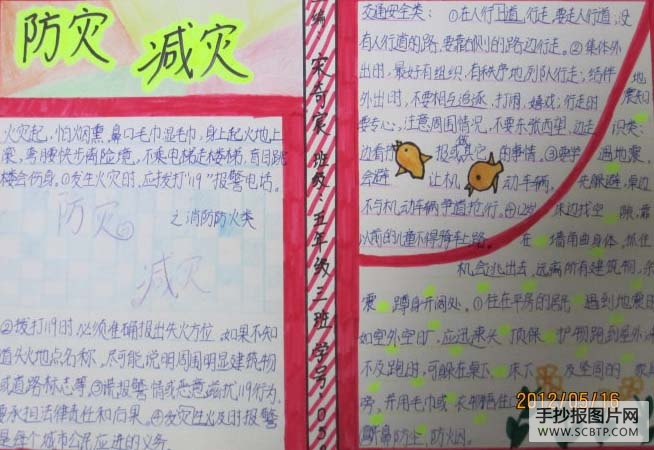 防灾 减灾
火灾起，怕烟熏，鼻口毛巾湿毛巾，身上起火地上
滚，弯腰快步离险境，不乘电梯走楼梯，盲目跳
楼会伤身。①发生火灾时，应拨打"119"报警电话。
防灾
之消防防火类
减灾
②拨打119时，必须准确报出失火方位，如果不知
道失火地点名称，尽可能说明周围明显建筑物
或道路标志等。③谎报警情或恶意骚扰119行为，
要承担法律责任和后果。④发
是每个城市公民应进的义务。
主编：宋奇宸 班级：五年级三班 学号：05
交通安全类：①在人行道行走，要走人行道，没
有人行道的路，要靠右侧的路边行走。②集体外
出时，最好有组织，有秩序地列队行走；结伴
外出时，不要相互追逐、打闹、嬉戏；行走时
要专心，注意周围情况，不要东张西望、边走
边看书报或其它的事情。③
会避让机动车辆，
不与机动车辆争道抢行。④12岁
以前的儿童不得骑车上路。
地
震知
识类：
遇地震，
先躲避，桌边
床边找空隙，靠
在墙角曲身体，抓住
机会逃出去，远离所有建筑物，余
震蹲身开阔处。①住在平房的居民遇到地震时
如室外空旷，应迅速头顶保护物跑到屋外，来
不及跑时，可躲在桌下、床下及坚固的家具
旁，并用毛巾或衣物捂住
口鼻防尘、防烟。
2012/05/16
手抄报图片网
WWW.SCBTP.COM